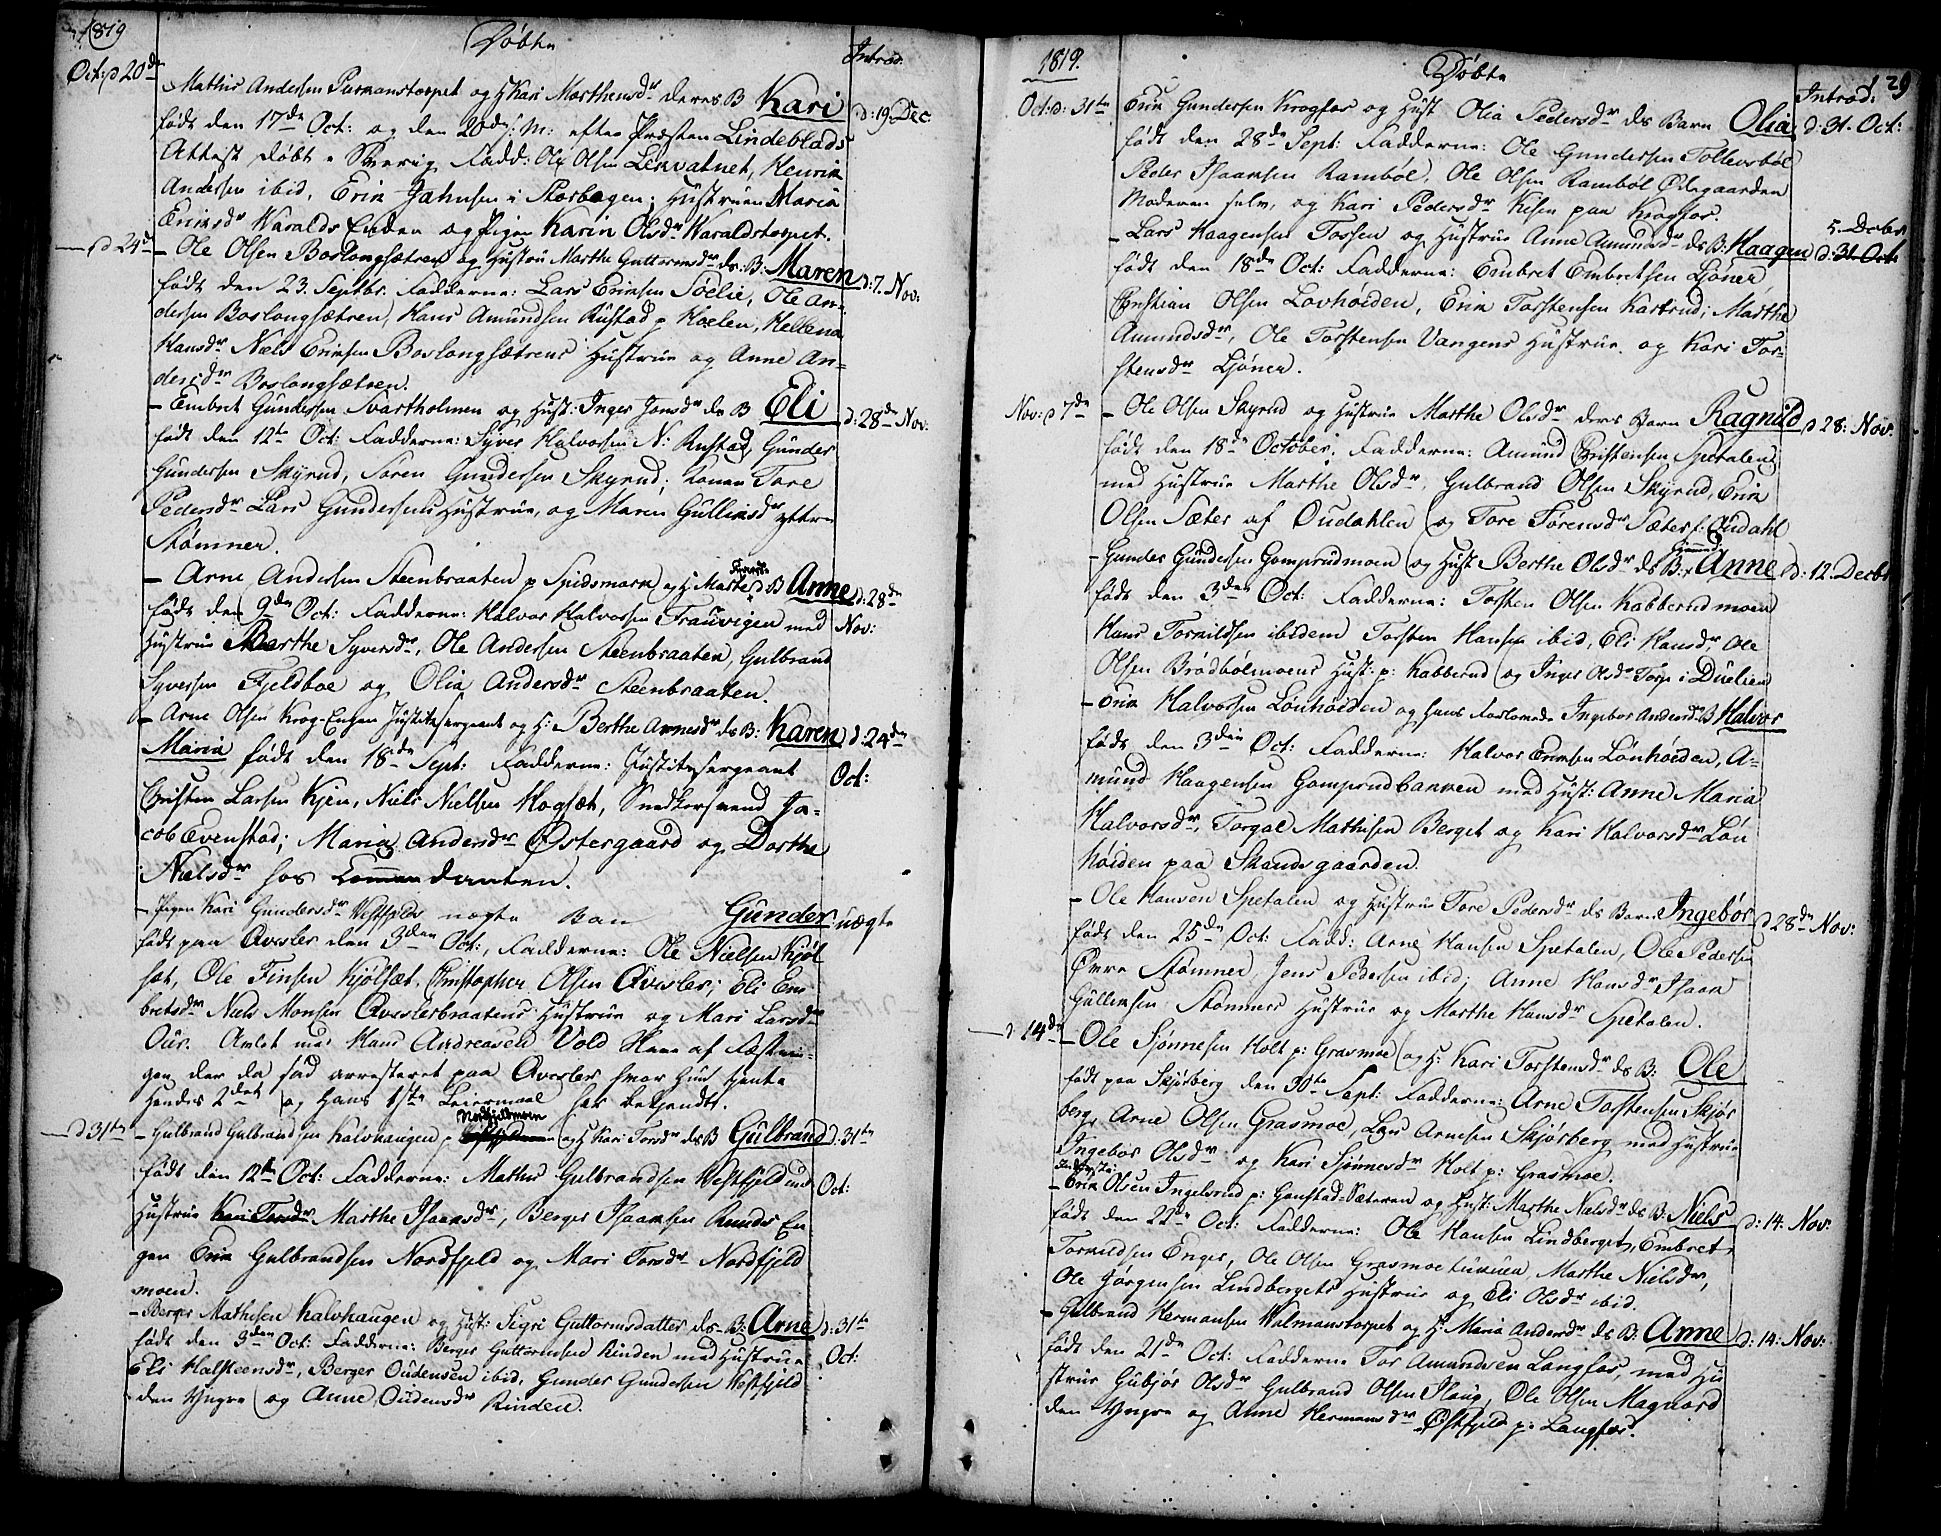 1819
Døbte
Introd.
Oct: d 20de
Mathis Andersen Purmanstorpet og H Kari Marthensdr deres B Kari d: 19 Dec
født den 17de Oct: og den 20de s: M: efter Præsten Lindeblads
Attest døbt i Sverig Fadd: Ole Olsen Lervatnet, Henrik
Andersen ibid, Erik Jahnsen i Storbogen; Hustruen Maria
Eriksdr Haralds Enden og Pigen Karin Olsdr Haraldstorpet.
d 24de
– Ole Olsen Boslongsætren og Hustru Marthe Guttormsdr ds: B: Maren d: 7. Nov:
født den 23. Septbr. Fadderne: Lars Eriksen Søelie, Ole An-
dersen Boslongsætren, Hans Amundsen Rustad p Hoelen, Hellena
Hansdr Niels Eriksen Boslongsætrens Hustrue og Anne An-
dersdr Boslongsætren.
– Embret Gundersen Svartholmen og Hust: Inger Jonsdr ds B Eli d: 28de Nov:
født den 12te Oct: Fadderne: Syver Halvorsen N: Rustad, Gunder
Gundersen Skyrud, Søren Gundersen Skyrud; Konen Tore
Pedersdr Lars Gundersens Hustrue, og Maren Gulliksdr yttre
Stømner.
– Arne Andersen Steenbraaten p Spidsmark og H Marte ds B Anne d: 28de
født den 9de Oct: Fadderne: Halvor Halvorsen Frauvigen med Nov:
Hustrue Marthe Syversdr, Ole Andersen Steenbraaten, Gulbrand
Syversen Fjeldboe og Olia Andersdr Steenbraaten.
– Arne Olsen Krog-Engen Justitssergeant og H: Berthe Arnesdr ds B: Karen d: 24de
Maria født den 18de Sept: Fadderne: Justitssergeant Oct:
Christen Larsen Kjen, Niels Nielsen Hogsæt, Snedkersvend Ja-
cob Evenstad; Maria Andersdr Østergaard og Dorthe
Nielsdr hos Commandanten.
– Pigen Kari Gundersdr Vestfjelds uægte Barn Gunder uægte
født paa Overler den 3den Oct:, Fadderne: Ole Nielsen Kjøl
sæt, Ole Finsen Kjølsæt, Christopher Olsen Overler; Eli Em-
bretsdr Niels Monsen Overlerbraatens Hustrue og Mari Larsdr
Our. Avlet med Hans Andreasen Vold Slave af Fæstnin-
gen der da sad arresteret paa Overler hvor hun tjente
Hendes 2det og Hans 1ste Leiermaal har bekjendt.
d 31te
– Gulbrand Gulbrandsen Kalvhaugen p Nordfjeldmoen og H Kari Torsdr ds B Gulbrand d: 31te
født den 12te Oct: Fadderne: Mathis Gulbrandsen Vestfjeld med Oct:
Hustrue Kari Torsdr Marthe Isaaksdr, Berger Isaaksen Runds En-
gen Erik Gulbrandsen Nordfjeld og Mari Torsdr Nordfjeld
moen.
– Berger Mathisen Kalvhaugen og Hust: Sigri Guttormsdatter ds B: Arne d: 31te
født den 3den Oct: Fadderne: Berger Guttormsen Rinden med Hustrue Oct:
Eli Halsteensdr, Berger Oudensen ibid, Gunder Gundersen Vestfjeld
den Yngre og Anne Oudensdr Rinden.
1819.
Døbte
Introd:
29
Oct: d: 31te
Erik Gundersen Krogfos og Hust Olia Pedersdr ds Barn Olia d: 31. Oct:
født den 28de Sept: Fadderne: Ole Gundersen Tollevsbøl
Peder Isaaksen Rambøl, Ole Olsen Rambøl Ødegaarden
Moderen selv, og Kari Pedersdr Nisen paa Krogfos.
5. Decbr
– Lars Haagensen Tossen og Hustrue Anne Amundsdr ds B: Haagen d: 31 Oct:
født den 18de Oct: Fadderne: Embret Embretsen Ljøner
Christian Olsen Lovhøiden, Erik Torstensen Kastrud; Marthe
Amundsdr, Ole Torstensen Vangens Hustrue og Kari Tor-
stensdr Ljøner.
Nov: d 7de
– Ole Olsen Skyrud og Hustrue Marthe Olsdr deres Barn Ragnild d 28: Nov.
født den 18de October. Fadderne: Amund Christensen Spetalen
med Hustrue Marthe Olsdr, Gulbrand Olsen Skyrud, Erik
Olsen Sæter af Oudahlen og Tore Sørensdr Sæter i Oudahl
– Gunder Gundersen Gomprudmoen og Hust Berthe Olsdr ds B: Anne d: 12. Decbr
født den 3den Oct: Fadderne: Torsten Olsen Kobberud moen
Hans Torkildsen ibidem Torsten Hansen ibid, Eli Hansdr Ole
Olsen Brødbølmoens Hust: p: Kobberud og Inger Olsdr Torp i Duelien
– Erik Halvorsen Lønhøiden og hans Forlovede Ingebor Andersdr B Halvor
født den 3die Oct: Fadderne: Halvor Eriksen Lønhøiden, A-
mund Haagensen Gomprudbakken med Hust: Anne Maria
Halvorsdr, Torgal Mathisen Berget og Kari Halvorsdr Løn
høiden paa Skandsgaarden.
– Ole Hansen Spetalen og Hustrue Tore Pedersdr ds Barn Ingebor d 28de Nov:
født den 25de Oct: Fadd: Arne Hansen Spetalen, Ole Pedersen
Øvre Stømner, Jens Pedersen ibid; Anne Hansdr Isaak
Gulliksen Stømners Hustrue og Marthe Hansdr Spetalen.
d 14de
– Ole Sjønnesen Holt p: Grasmoe og H: Kari Torstensdr ds B: Ole
født paa Skjørberg den 30te Sept: Fadderne: Arne Torstensen Skjør
berg, Arne Olsen Grasmoe, Lars Arnesen Skjørberg med Hustrue
Ingebor Olsdr og Kari Sjønnesdr Holt p: Grasmoe.
– Erik Olsen Ingelsrud p: Gaustad-Sæteren og Hust: Marthe Nielsdr ds B: Niels d: 14: Nov:
født den 22de Oct: Fadderne: Ole Hansen Lindberget, Embret
Torkildsen Enger, Ole Olsen Grasmoe, Marthe Nielsdr,
Ole Jørgensen Lindbergets Hustrue og Eli Olsdr ibid.
– Gulbrand Hermansen Holmanstorpet og H: Maria Andersdr ds B: Anne d: 14: Nov:
født den 21de Oct: Fadderne Tor Amundsen Langfos, med Hu
strue Gubjør Olsdr Gulbrand Olsen Ilaug, Ole Olsen Magnord
den Yngre og Anne Hermansdr Østfjeld p: Langfos.